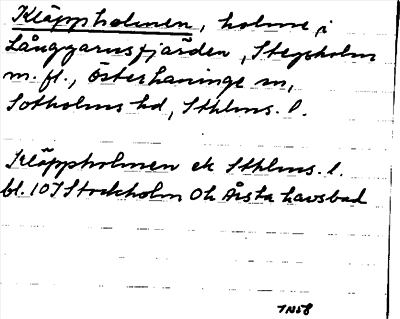 Kläppholmen, holme i
Långgarnsfjärden, Stegsholm
m. fl., Österhaninge sn,
Sotholms hd, Sthlms. l.
Kläppholmen ek Sthlms. l.
bl. 107 Stockholm Ok Årsta havsbad